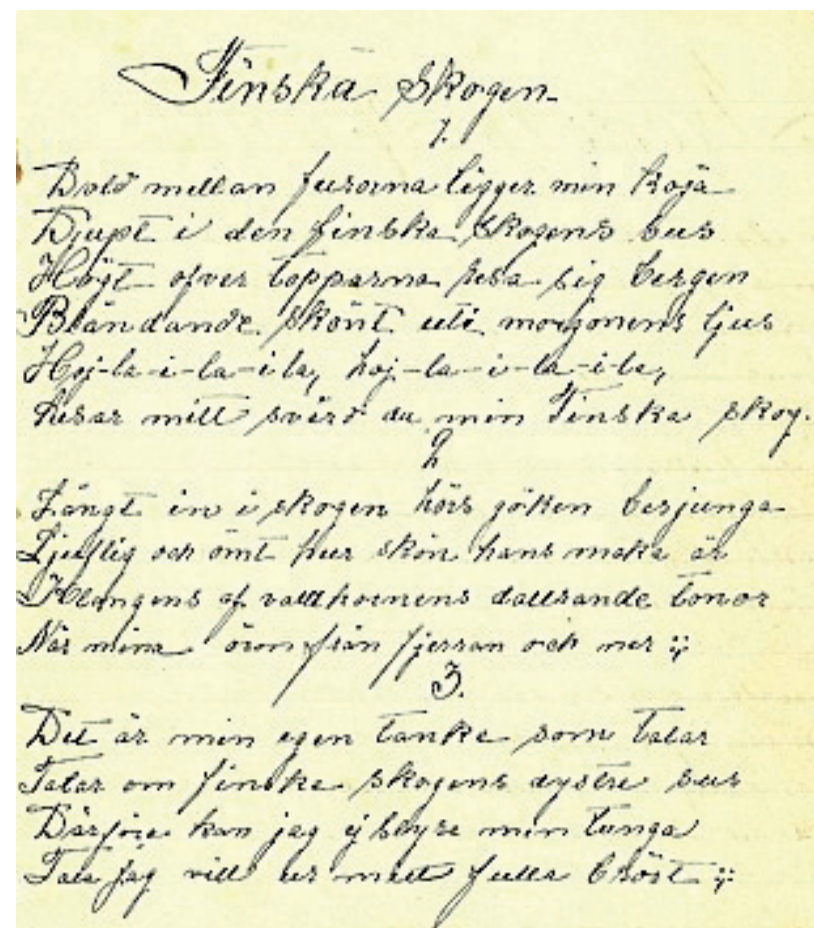 Finska Skogen
1.
Dold mellan furorna ligger min koja
Djupt i den finska skogens sus
Höijt öfver topparna resa sig bergen
Bländande skönt uti morgonens ljus
Hoj-la-i-la-i la, hoj-la-i-la-i-la,
susar mitt svärd du min Finska skog.
2
Långt in i skogen hörs göken besjunga
Ljuflig och ömt hur skön hans maka är
Klangens af vallhornens dallrande tonor
Når mina öron från fjerran och ner :;
3.
Det är min egen tanke som talar
Talar om finska skogens dystre sus
Därföre kan jag ej styre min tunga
Tala jag vill ur mitt fulla bröst :;